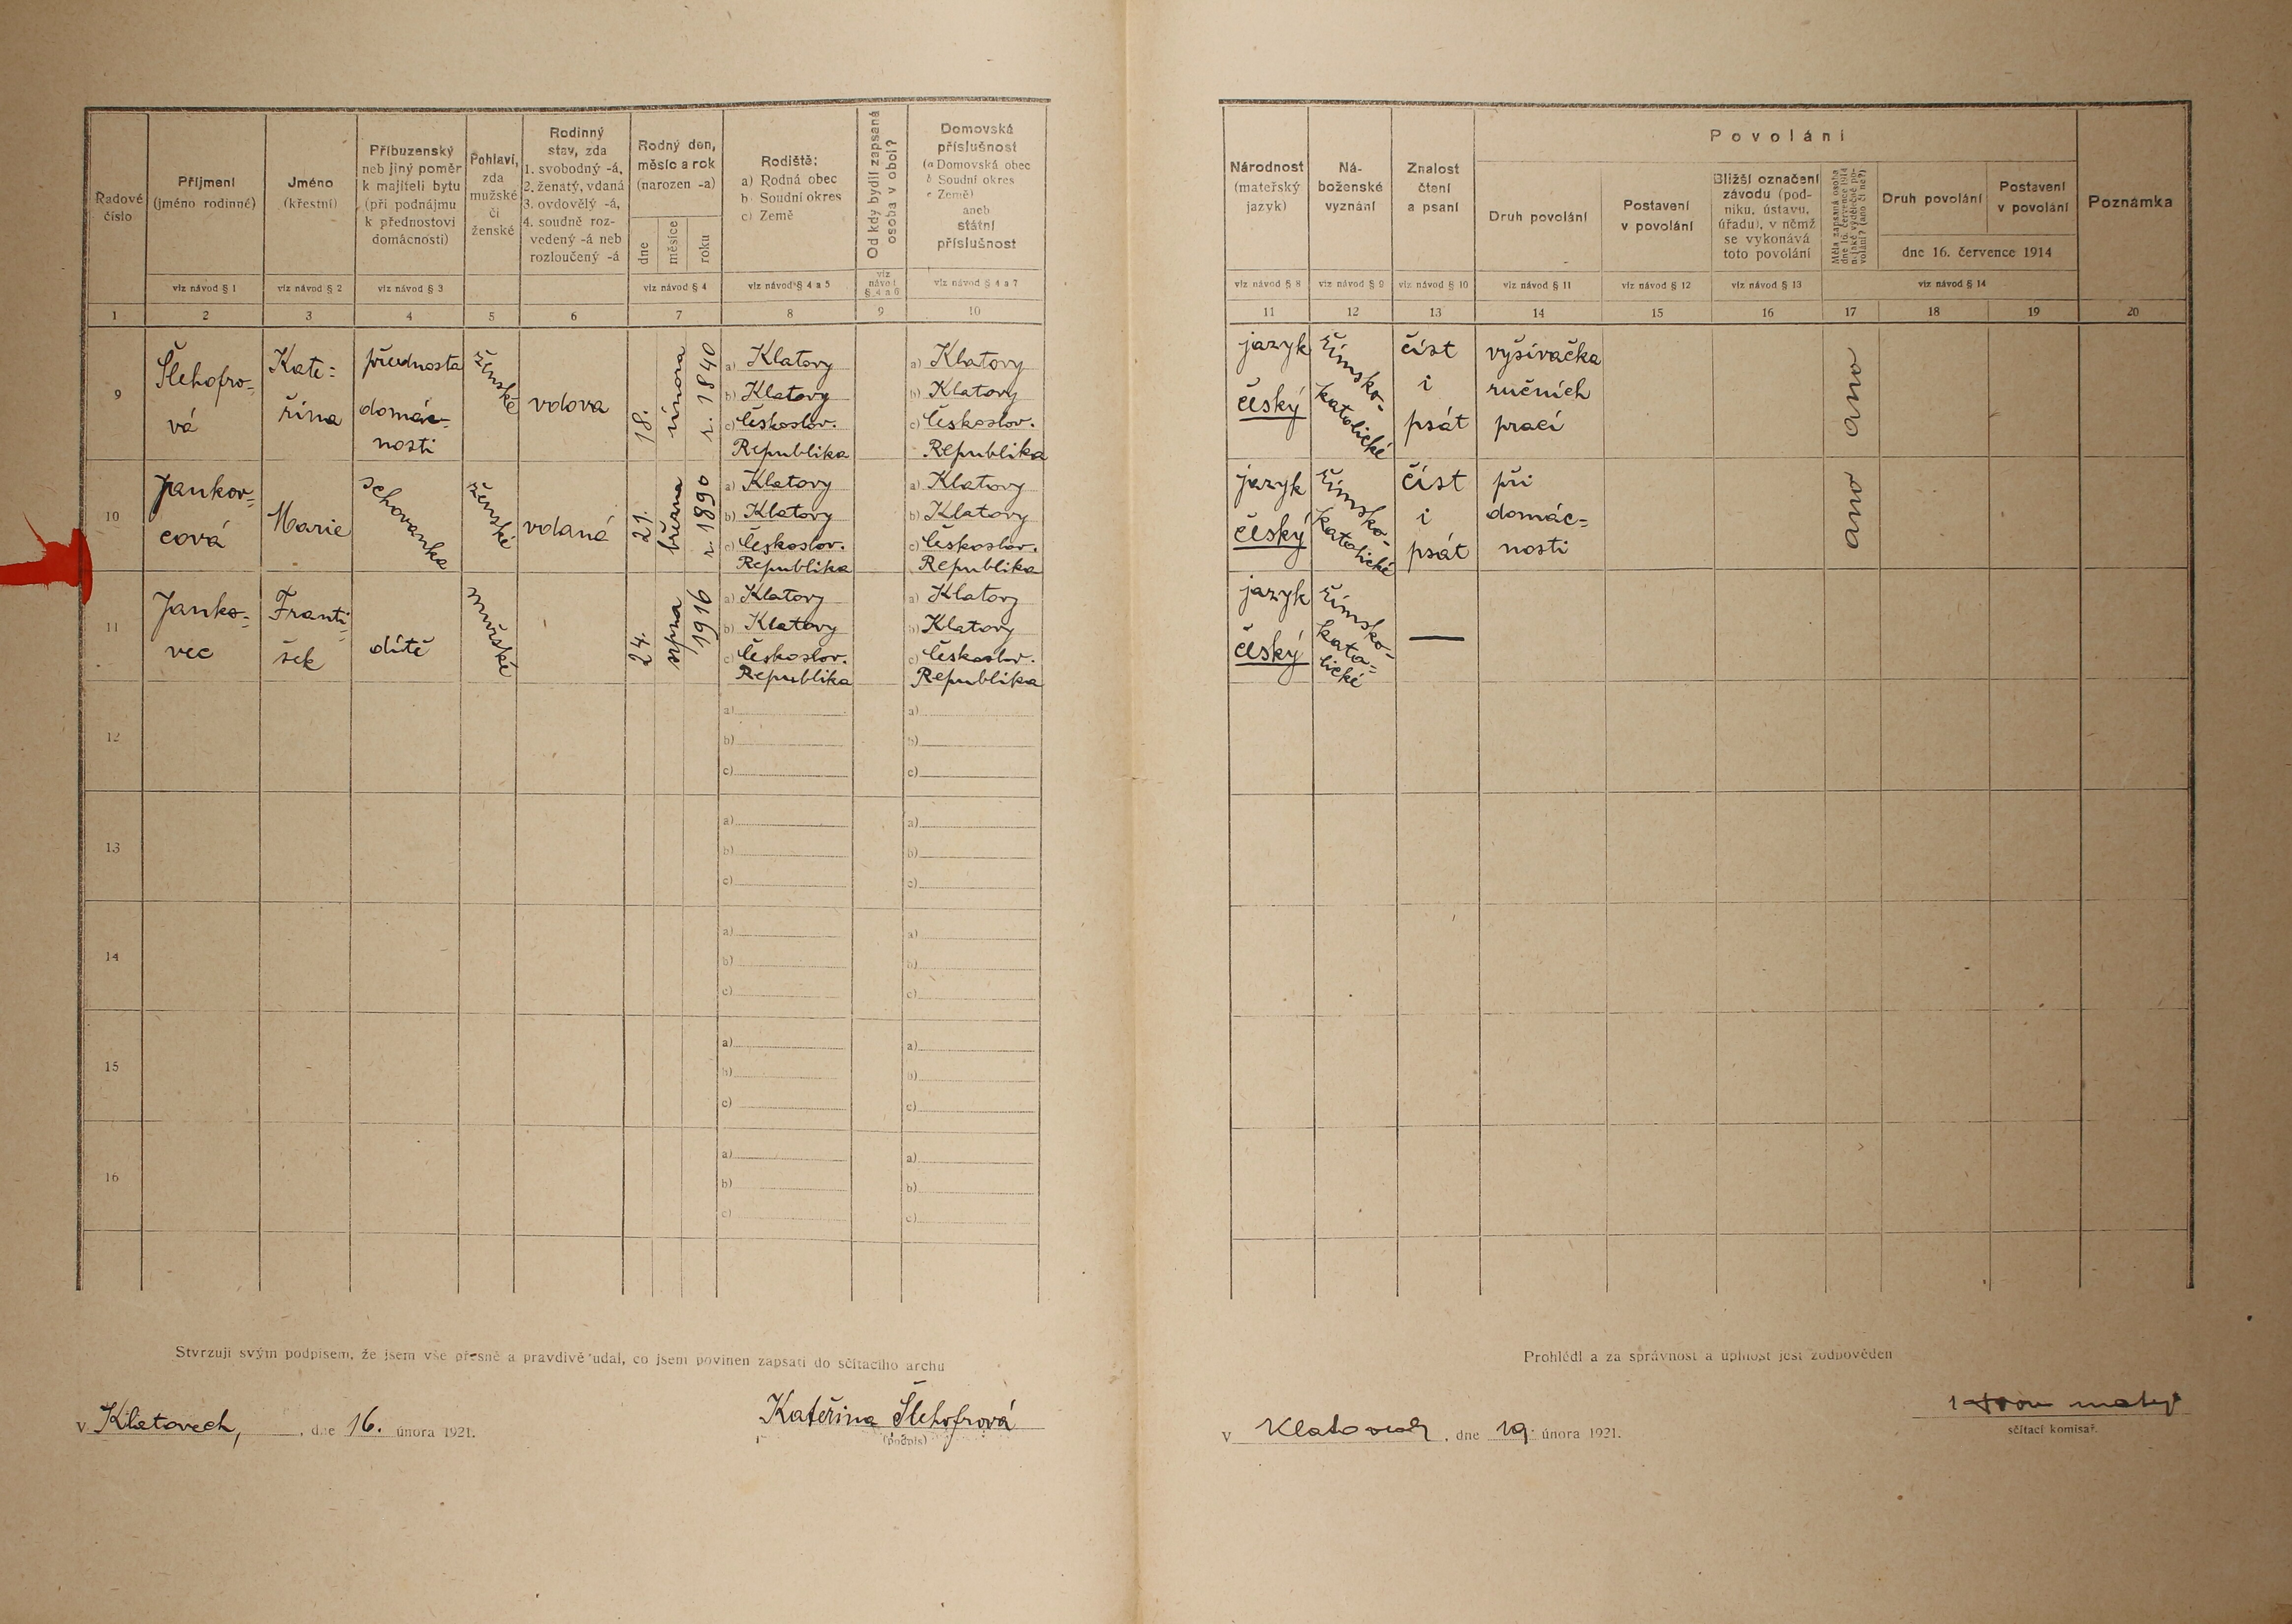 Řadové číslo
Příjmení
(jméno rodinné)
viz návod § 1
Jméno
(křestní)
viz návod § 2
Příbuzenský
neb jiný poměr
k majiteli bytu
(při podnájmu
k přednostovi
domácnosti)
viz návod § 3
Pohlaví,
zda
mužské
či
ženské
Rodinný
stav, zda
1. svobodný -á,
2. ženatý, vdaná
3. ovdovělý -á,
4. soudně roz-
vedený -á neb
rozloučený -á
Rodný den,
měsíc a rok
(narozen -a)
dne
měsíce
roku
viz návod § 4
Rodiště:
a) Rodná obec
b) Soudní okres
c) Země
viz návod § 4 a 5
Od kdy bydlí zapsaná
osoba v obci?
viz
návod
§ 4 a 6
Domovská
příslušnost
(a Domovská obec
b Soudní okres
c Země)
aneb
státní
příslušnost
viz návod § 4 a 7
Národnost
(mateřský
jazyk)
viz návod § 8
Ná-
boženské
vyznání
viz návod § 9
Znalost
čtení
a psaní
viz návod § 10
Povolání
Druh povolání
viz návod § 11
Postavení
v povolání
viz návod § 12
Bližší označení
závodu (pod-
niku, ústavu,
úřadu), v němž
se vykonává
toto povolání
viz návod § 13
Měla zapsaná osoba
dne 16. července 1914
nějaké výdělečné po-
volání? (ano či ne?)
Druh povolání
Postavení
v povolání
dne 16. července 1914
viz návod § 14
Poznámka
1 2 3 4 5 6 7 8 9 10 11 12 13 14 15 16 17 18 19 20
9
Šlehofro-
vá
Kate-
řina
přednosta
domác-
nosti
ženské
vdova
18.
února
r. 1840
a) Klatovy
b) Klatovy
c) Českoslov.
Republika
a) Klatovy
b) Klatovy
c) Českoslov.
Republika
jazyk
český
římsko-
katolické
číst
i
psát
vyšívačka
ručních
prací
ano
10
Jankov-
cová
Marie
schovanka
ženské
vdaná
21.
března
r. 1890
a) Klatovy
b) Klatovy
c) Českoslov.
Republika
a) Klatovy
b) Klatovy
c) Českoslov.
Republika
jazyk
český
římsko-
katolické
číst
i
psát
při
domác-
nosti
ano
11
Janko-
vec
Franti-
šek
dítě
mužské
24.
srpna
1916
a) Klatovy
b) Klatovy
c) Českoslov.
Republika
a) Klatovy
b) Klatovy
c) Českoslov.
Republika
jazyk
český
římsko-
kato-
lické
—
12
a) a)
b) b)
c) c)
13
a) a)
b) b)
c) c)
14
a) a)
b) b)
c) c)
15
a) a)
b) b)
c) c)
16
a) a)
b) b)
c) c)
Stvrzuji svým podpisem, že jsem vše přesně a pravdivě udal, co jsem povinen zapsati do sčítacího archu
v Klatovech, , dne 16. února 1921.
Kateřina Šlehofrová
(podpis)
Prohlédl a za správnost a úplnost jest zodpověden
v Klatovech , dne 19. února 1921.
sčítací komisař.